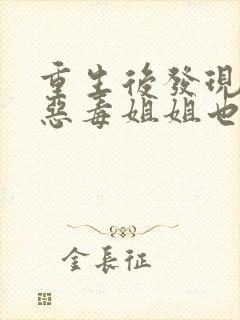 重生後發現
惡毒姐姐也
金長征